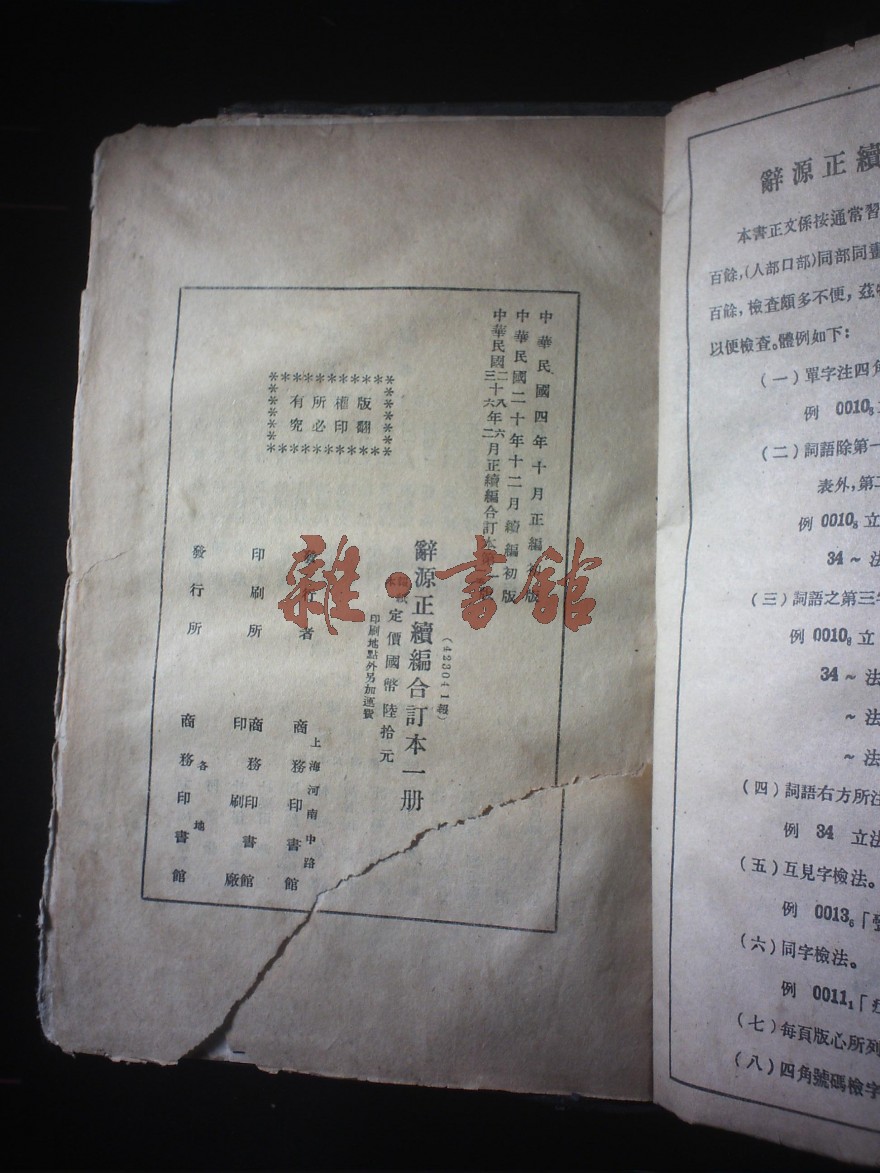 中華民國四年十月正編初版
中華民國二十年十二月續編初版
中華民國
二八六
三十六年二月正續編合訂本
版權所有
翻印必究
辭源正續編合訂本一册
定價國幣陸拾元
印刷地點外另加運費
行者
上海河南中路
商務印書館
印刷所
商務印書館
印刷廠
發行所
各地
商務印書館
雜·書館
辭源正續
本書正文係按通常習
百餘,(人部口部)同部同畫
百餘,檢查頗多不便,茲
以便檢查。體例如下:
(一)單字注四角
例 0010₈
(二)詞語除第一
表外,第二
例 0010₈ 立
34 ~ 法
(三)詞語之第三字
例 0010₈ 立
34 ~ 法
~ 法
~ 法
(四)詞語右方所注
例 34 立法
(五)互見字檢法。
例 0013₆「
(六)同字檢法。
例 0011₁「
(七)每頁版心所列
(八)四角號碼檢字